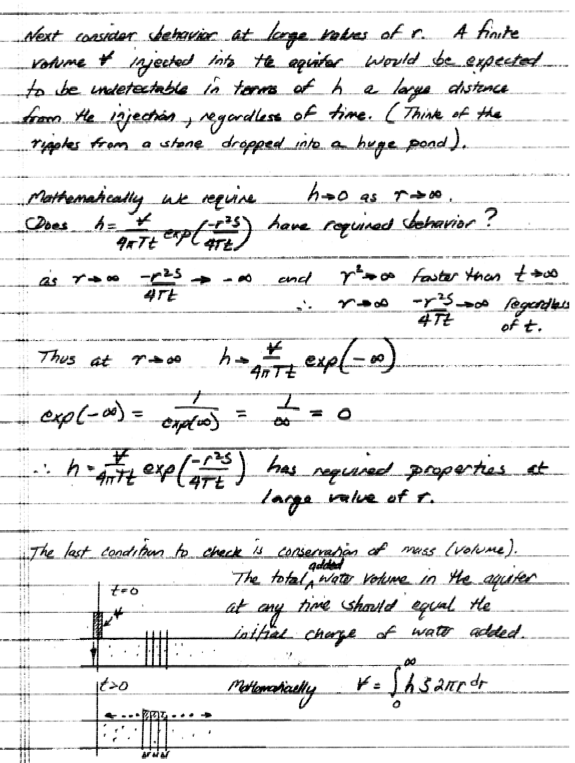 Next consider behavior at large values of r. A finite
volume V̶ injected into the aquifer would be expected
to be undetectable in terms of h a large distance
from the injection, regardless of time. (Think of the
ripples from a stone dropped into a huge pond).
Mathematically we require h→0 as r→∞.
Does h= V̶/4πTt exp(-r²S/4Tt) have required behavior?
as r→∞ -r²S/4Tt → -∞ and r²→∞ faster than t→∞
∴ r→∞ -r²S/4Tt →∞ regardless
of t.
Thus at r→∞ h→ V̶/4πTt exp(-∞)
exp(-∞) = 1/exp(∞) = 1/∞ = 0
∴ h= V̶/4πTt exp(-r²S/4Tt) has required properties at
large value of r.
The last condition to check is conservation of mass (volume).
added
The total ^ water volume in the aquifer
t=0
V̶
at any time should equal the
initial charge of water added.
t>0
Mathematically V̶ = ∫₀^∞ h S 2πr dr
Δr Δr Δr